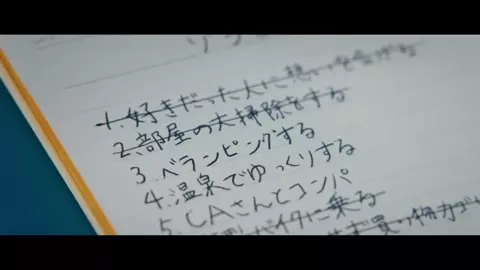 1.好きだった人に想いを告げる
2.部屋の大掃除をする
3.ベランピングする
4.温泉でゆっくりする
5.CAさんとコンパ
バイクに乗る